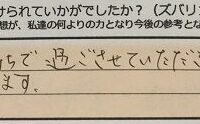 けられていかがでしたか?(ズバリ
想が、私達の何よりの力となり今後の参考とな
ちで過ごさせていただき
ます。